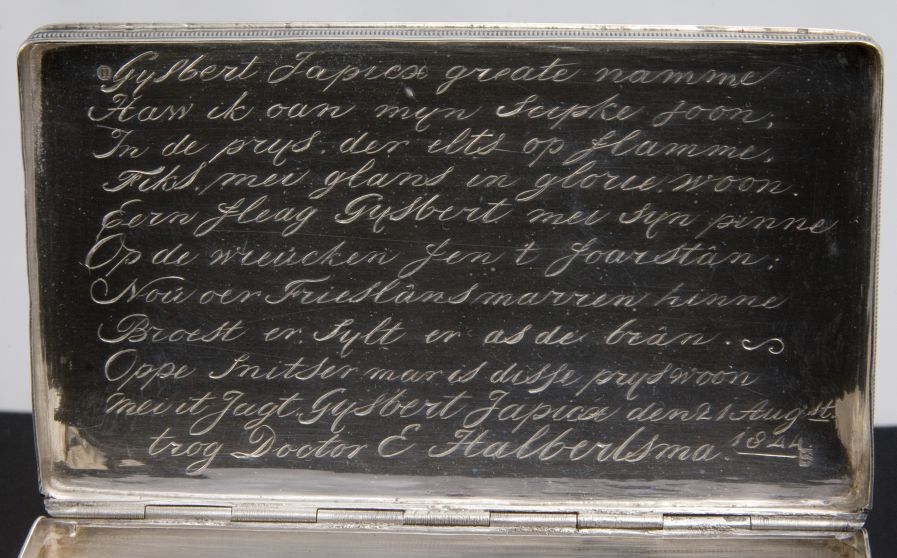 Gysbert Japicx greate namme
Haw ik oan myn Scipke joon,
In de prys, der elts op flamme,
Fiks, mei glans in glorie woon.
Eern fleag Gysbert mei syn pinne
Op de wieucken fen t foarstân;
Noû oer Frieslâns marren hinne
Broest er, Sylt er as de beân.
Oppe Snitser mar is disse prys woon
mei it Jagt Gysbert Japicx den 21 Augst
trog Doctor E Halbertsma. 1844